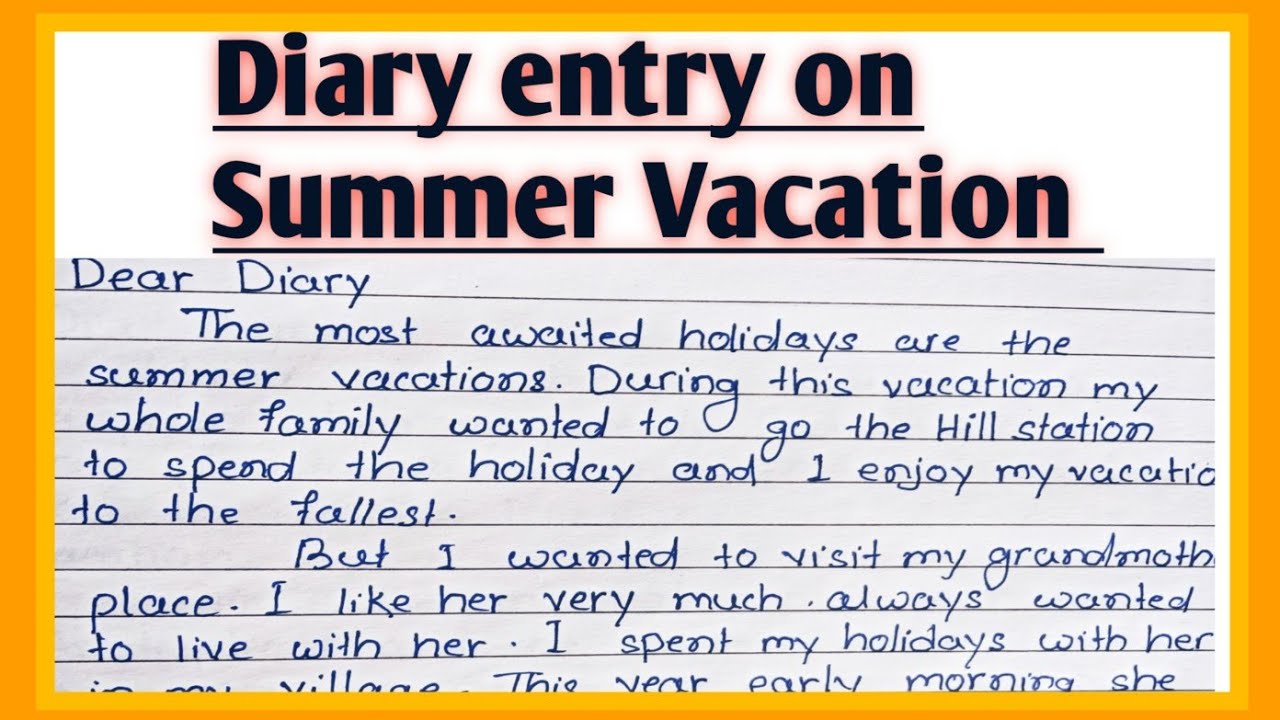 Diary entry on
Summer Vacation
Dear Diary
The most awaited holidays are the
summer vacations. During this vacation my
whole family wanted to go the Hill station
to spend the holiday and I enjoy my vacatio
to the fallest.
But I wanted to visit my grandmoth
place. I like her very much. always wanted
to live with her. I spent my holidays with her
in my village. This year early morning she